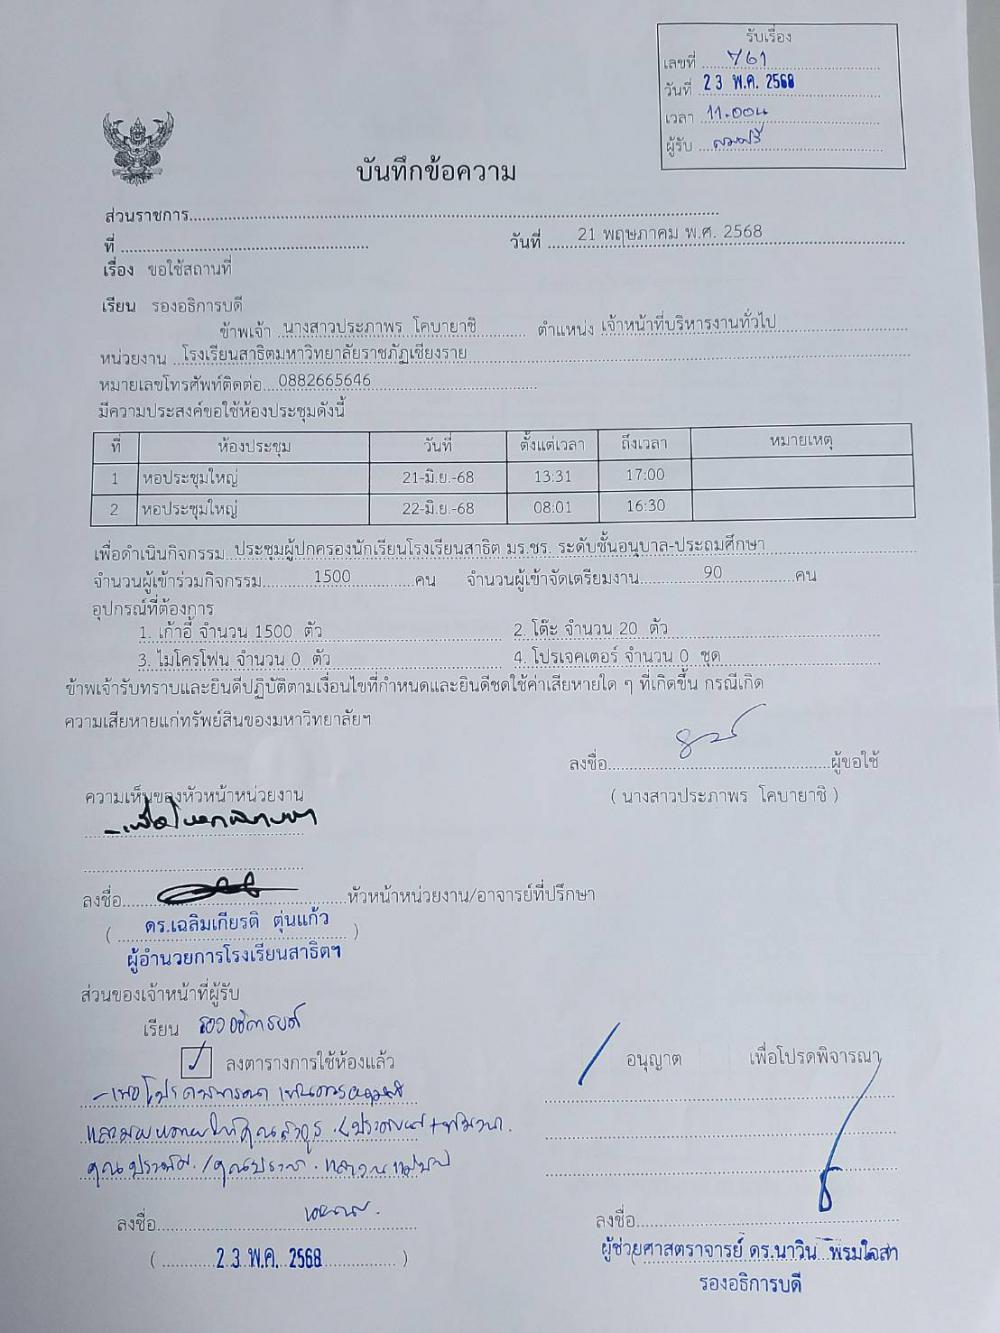 รับเรื่อง
เลขที่ 761
วันที่ 23 พ.ค. 2568
เวลา 11.00น
ผู้รับ
บันทึกข้อความ
ส่วนราชการ
ที่ วันที่ 21 พฤษภาคม พ.ศ. 2568
เรื่อง ขอใช้สถานที่
เรียน รองอธิการบดี
ข้าพเจ้า นางสาวประภาพร โคบายาชิ ตำแหน่ง เจ้าหน้าที่บริหารงานทั่วไป
หน่วยงาน โรงเรียนสาธิตมหาวิทยาลัยราชภัฏเชียงราย
หมายเลขโทรศัพท์ติดต่อ 0882665646
มีความประสงค์ขอใช้ห้องประชุมดังนี้
ที่ ห้องประชุม วันที่ ตั้งแต่เวลา ถึงเวลา หมายเหตุ
1 หอประชุมใหญ่ 21-มิ.ย.-68 13:31 17:00
2 หอประชุมใหญ่ 22-มิ.ย.-68 08:01 16:30
เพื่อดำเนินกิจกรรม ประชุมผู้ปกครองนักเรียนโรงเรียนสาธิต มร.ชร. ระดับชั้นอนุบาล-ประถมศึกษา
จำนวนผู้เข้าร่วมกิจกรรม 1500 คน จำนวนผู้เข้าจัดเตรียมงาน 90 คน
อุปกรณ์ที่ต้องการ
1. เก้าอี้ จำนวน 1500 ตัว 2. โต๊ะ จำนวน 20 ตัว
3. ไมโครโฟน จำนวน 0 ตัว 4. โปรเจคเตอร์ จำนวน 0 ชุด
ข้าพเจ้ารับทราบและยินดีปฏิบัติตามเงื่อนไขที่กำหนดและยินดีชดใช้ค่าเสียหายใด ๆ ที่เกิดขึ้น กรณีเกิด
ความเสียหายแก่ทรัพย์สินของมหาวิทยาลัยฯ
ลงชื่อ ผู้ขอใช้
( นางสาวประภาพร โคบายาชิ )
ความเห็นของหัวหน้าหน่วยงาน
- เพื่อโปรดพิจารณา
ลงชื่อ หัวหน้าหน่วยงาน/อาจารย์ที่ปรึกษา
( ดร.เฉลิมเกียรติ ตุ่นแก้ว )
ผู้อำนวยการโรงเรียนสาธิตฯ
ส่วนของเจ้าหน้าที่ผู้รับ
เรียน รองอธิการบดี
✓ ลงตารางการใช้ห้องแล้ว
/ อนุญาต เพื่อโปรดพิจารณา
- เพื่อโปรดพิจารณา
ลงชื่อ
( 23 พ.ค. 2568 )
ลงชื่อ
ผู้ช่วยศาสตราจารย์ ดร.นาวิน พรมใจสา
รองอธิการบดี